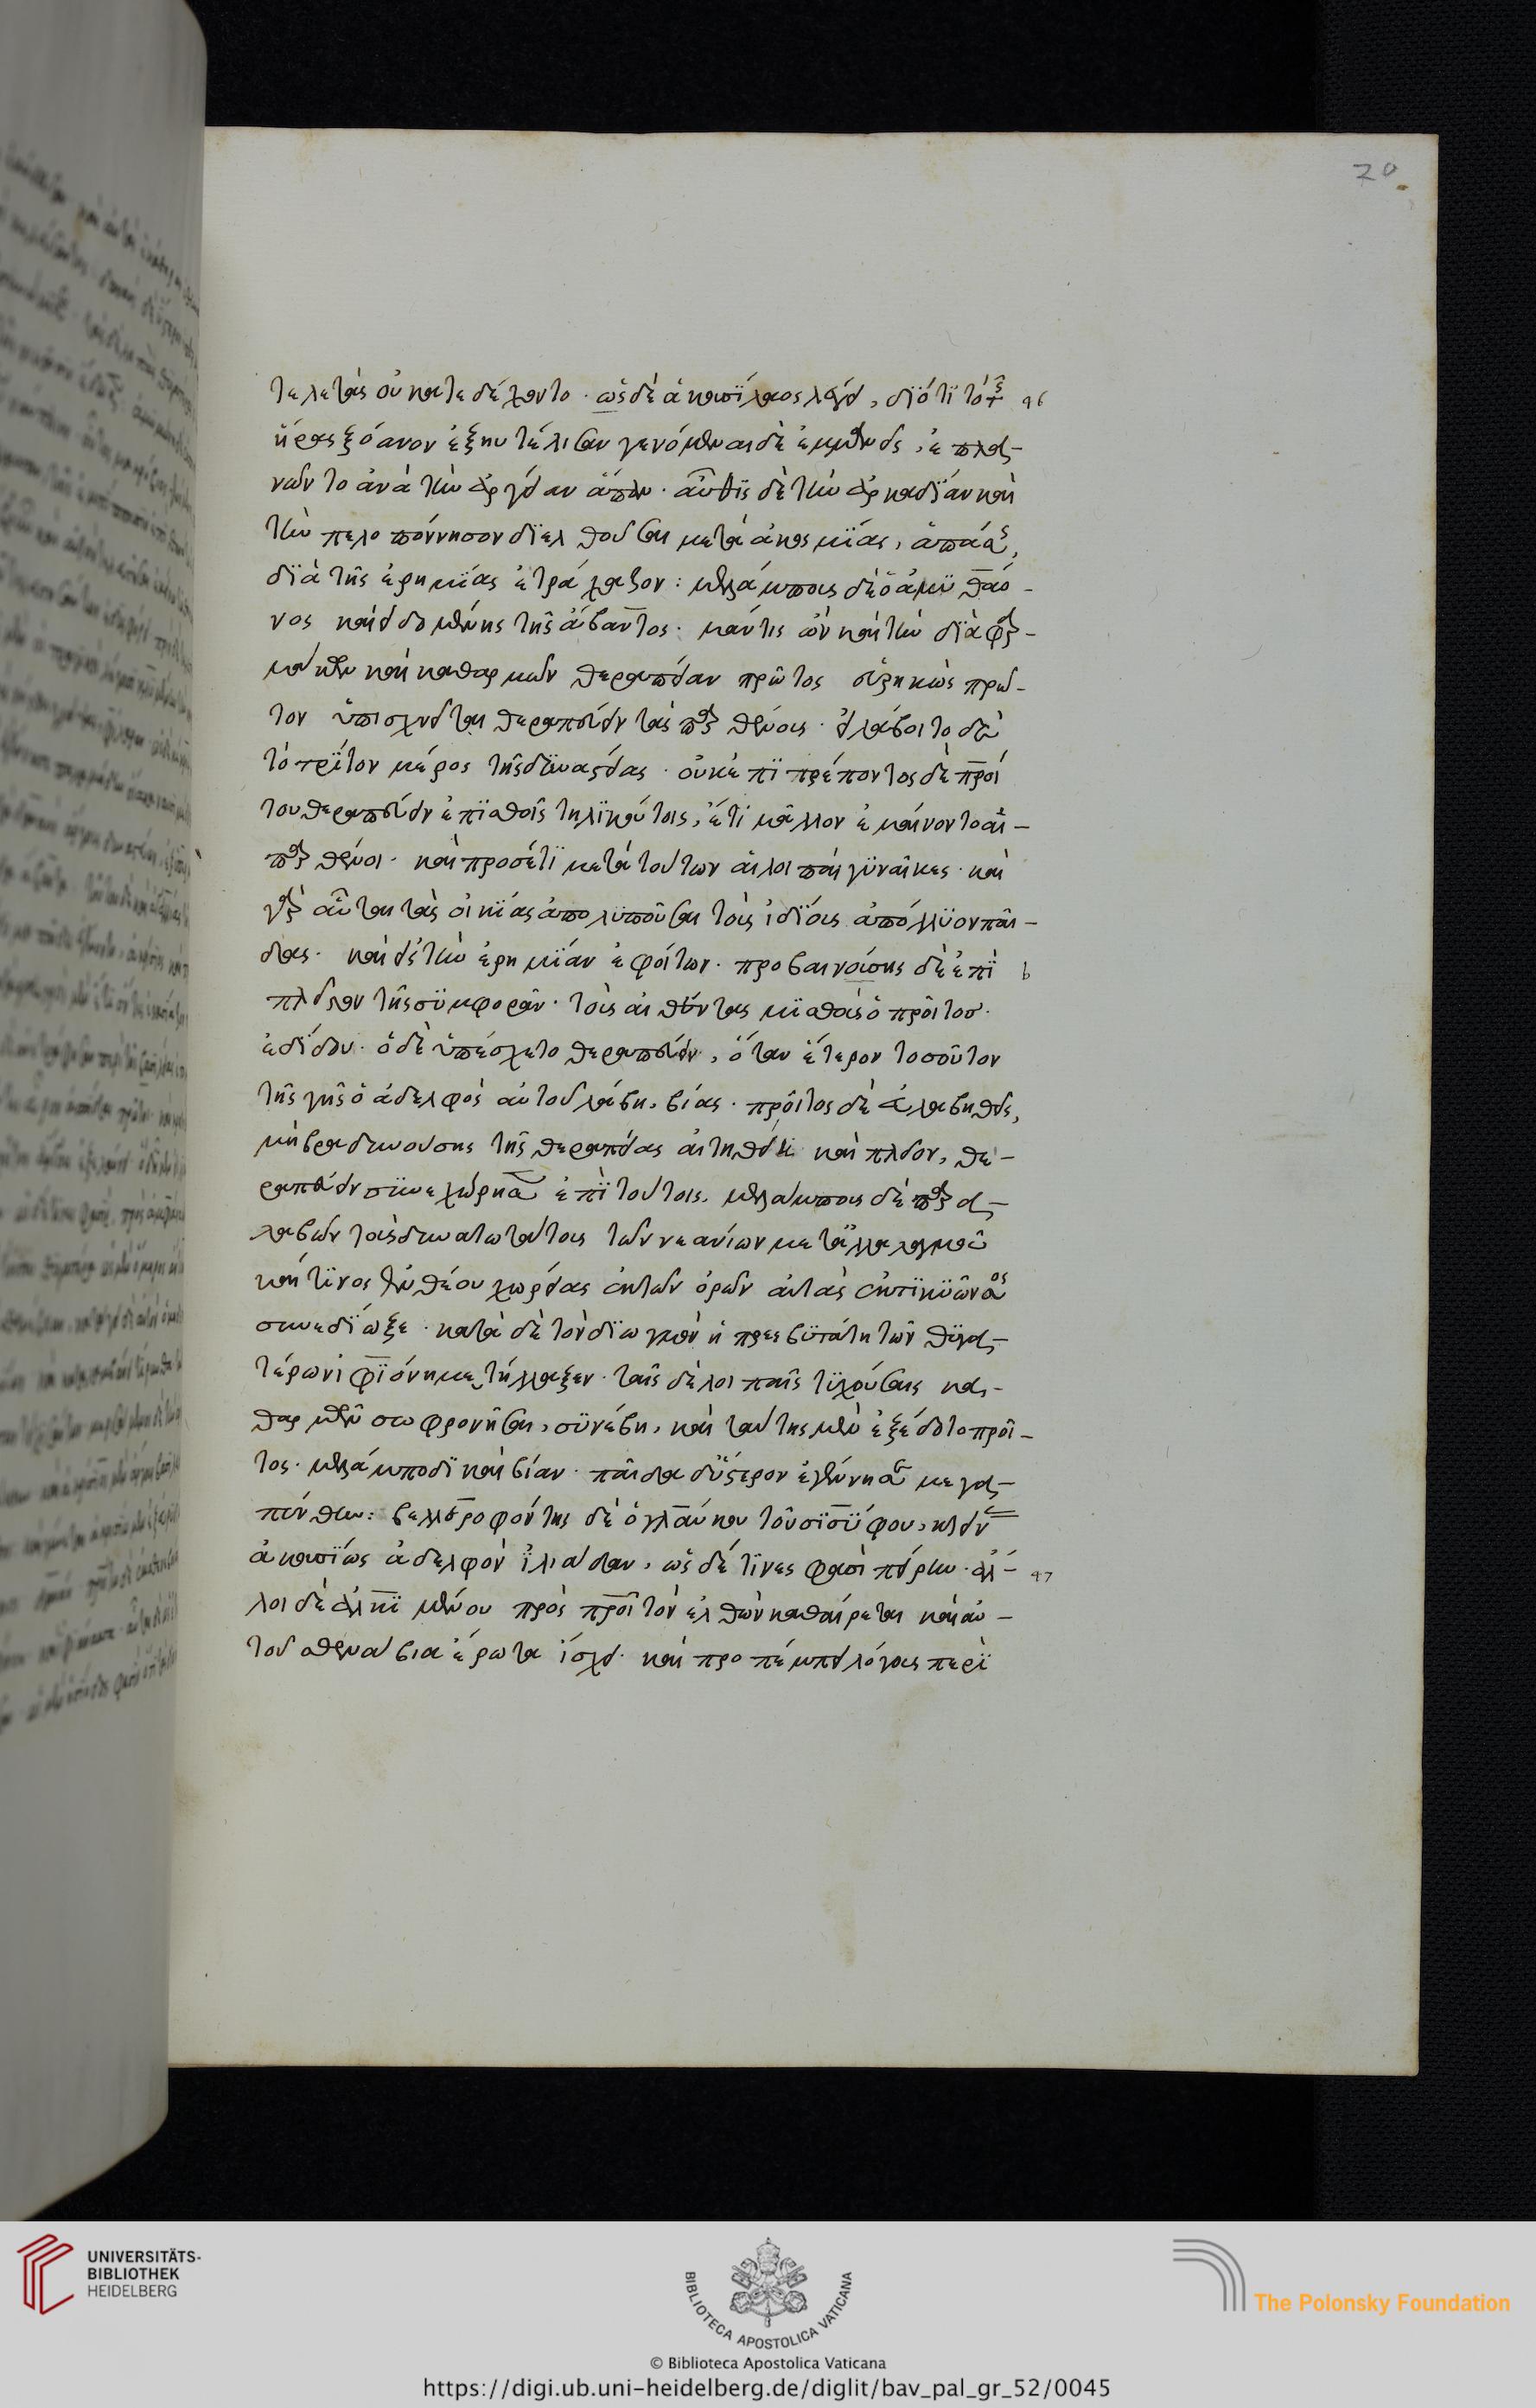 20
τελετὰς οὐ κατεδέχοντο· ὡς δὲ ἀκουσίλαος λέγει, διότι τὸ τῆς 96
ἥρας ξόανον ἐξηυτέλισαν γενόμεναι δὲ ἐμμανεῖς, ἐπλα-
νῶντο ἀνὰ τὴν ἀργείαν ἅπασαν· αὖθις δὲ τὴν ἀρκαδίαν καὶ
τὴν πελοπόννησον διελθοῦσαι μετὰ ἀκοσμίας, ἁπάσης,
διὰ τῆς ἐρημίας ἐτρόχαζον: μελάμπους δὲ ὁ ἀμυθάο-
νος καὶ εἰδομένης τῆς ἄβαντος· μάντις ὢν καὶ τὴν διὰ φαρ-
μάκων καὶ καθαρμῶν θεραπείαν πρῶτος εὑρηκὼς πρῶ-
τον ὑπισχνεῖται θεραπεύειν τὰς παρθένους· εἰ λάβοιτο δὲ
τὸ τρίτον μέρος τῆς δυναστείας· οὐκ ἐπιτρέποντος δὲ προί
του θεραπεύειν ἐπὶ μισθοῖς τηλικούτοις, ἔτι μᾶλλον ἐμαίνοντο αἱ
παρθένοι· καὶ προσέτι μετὰ τούτων αἱ λοιπαὶ γυναῖκες· καὶ
γὰρ αὗται τὰς οἰκίας ἀπολιποῦσαι τοὺς ἰδίους ἀπόλλυον παῖ-
δας· καὶ εἰς τὴν ἐρημίαν ἐφοίτων· προβαινούσης δὲ ἐπὶ b
πλεῖστον τῆς συμφορᾶς· τοὺς αἰτηθέντας μισθοὺς ὁ προῖτος·
ἐδίδου· ὁ δὲ ὑπέσχετο θεραπεύειν, ὅταν ἕτερον τοσοῦτον
τῆς γῆς ὁ ἀδελφὸς αὐτοῦ λάβῃ, βίας· προῖτος δὲ εὐλαβηθεὶς,
μὴ βραδυνούσης τῆς θεραπείας αἰτηθείη καὶ πλεῖον, θε-
ραπεύειν συνεχώρησεν ἐπὶ τούτοις, μελάμπους δὲ παρα-
λαβὼν τοὺς δυνατωτάτους τῶν νεανίων μετ' ἀλαλαγμοῦ
καί τινος ἐνθέου χορείας ἐκ τῶν ὀρῶν αὐτὰς ἐς σικυῶνα
συνεδίωξε· κατὰ δὲ τὸν διωγμὸν ἡ πρεσβυτάτη τῶν θυγα-
τέρων ἰφιόνη μετήλλαξεν· ταῖς δὲ λοιπαῖς τυχούσαις κα-
θαρμῶν σωφρονῆσαι, συνέβη, καὶ ταύτης μὲν ἐξέδοτο προῖ-
τος· μελάμποδι καὶ βίαν· παῖδα δὕστερον ἐγέννησε μεγα-
πένθην: βελλεροφόντης δὲ ὁ γλαύκου τοῦ σισύφου, κτείνας
ἀκουσίως ἀδελφὸν ἰλιάδαν, ὡς δέ τινες φασὶ πείρην· ἄλ- 97
λοι δὲ ἀλκιμένου πρὸς προῖτον ἐλθὼν καθαίρεται καὶ αὐ-
τοῦ σθενάβια ἔρωτα ἴσχει· καὶ προπέμπει λόγους περὶ
UNIVERSITÄTS-
BIBLIOTHEK
HEIDELBERG
BIBLIOTECA APOSTOLICA VATICANA
The Polonsky Foundation
© Biblioteca Apostolica Vaticana
https://digi.ub.uni-heidelberg.de/diglit/bav_pal_gr_52/0045